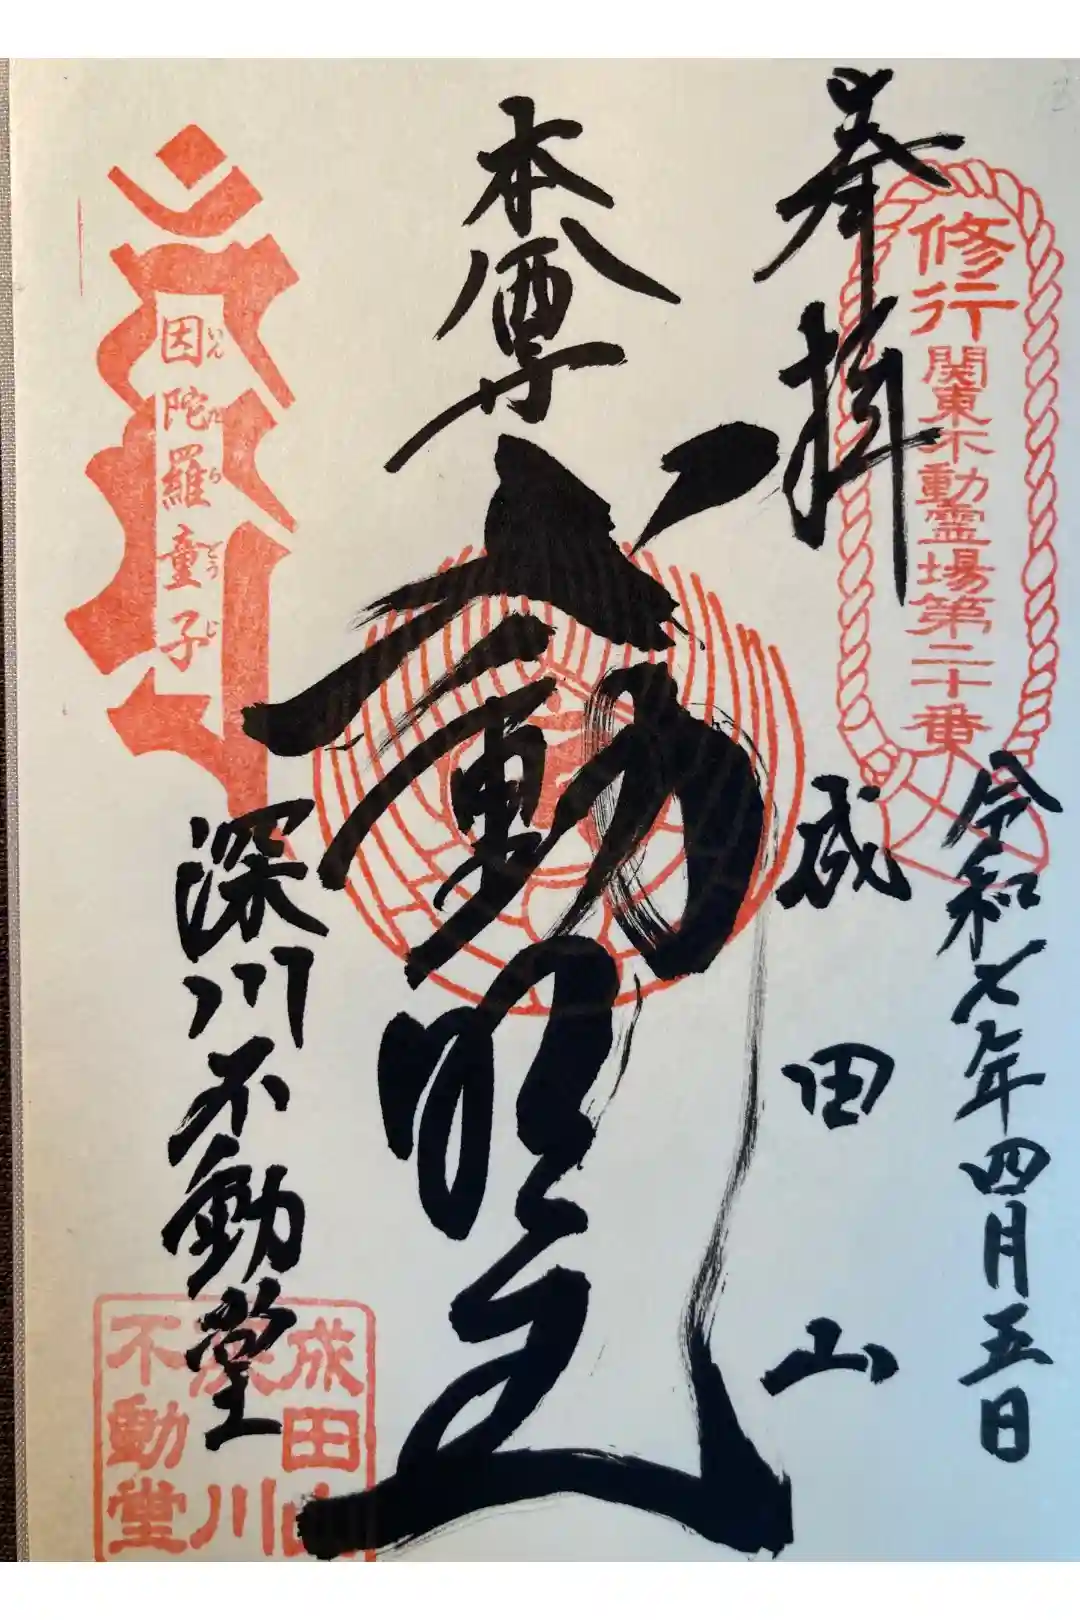 奉拝
修行
関東不動霊場第二十番
令和七年四月五日
成田山
本尊
不動明王
因陀羅童子
いんだらどうじ
深川不動堂
成田山
深川
不動堂